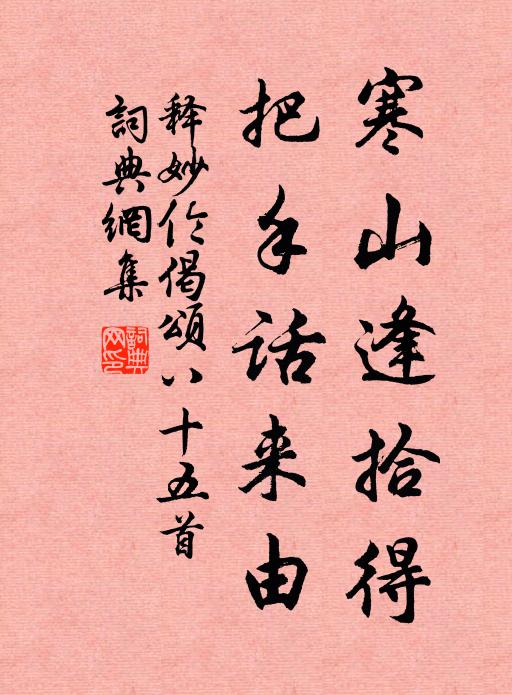 寒山逢拾得
把手话来由
释妙伦偈颂八十五首
詞典網集
詞典網印